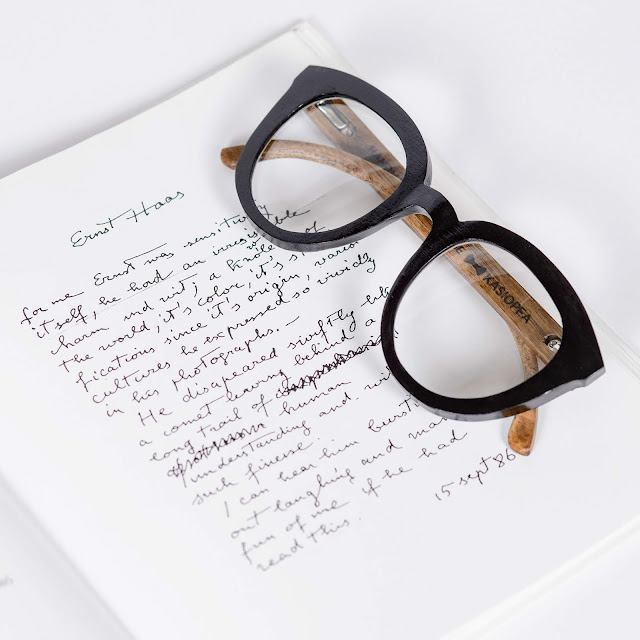 Ernst Haas
for me Ernst was sensitivity
itself, he had an irresistible
charm and wit, a of
the world, it's color, it's
fications since it's origin, various
cultures he expressed so vividly
in his photographs.—
He disapeared swiftly like
a comet leaving behind a
long trail of
human
understanding and
such finesse.
I can hear him
out laughing and
fun of me if he had
read this.
15 sept 86
KASIOPEA